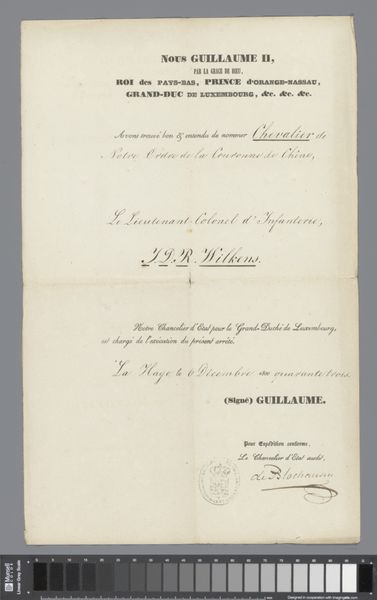 Nous GUILLAUME II,
PAR LA GRACE DE DIEU,
ROI des PAYS-BAS, PRINCE d'ORANGE-NASSAU,
GRAND-DUC DE LUXEMBOURG, &c. &c. &c.
Avons trouvé bon & entendu de nommer Chevalier de
Notre Ordre de la Couronne de Chêne,
Le Lieutenant-Colonel d'Infanterie,
J. D. R. Wilkens.
Notre Chancelier d'Etat pour le Grand-Duché de Luxembourg,
est chargé de l'exécution du présent arrêté.
La Haye le 6 Décembre 1800 quarante trois
(Signé) GUILLAUME.
Pour Expédition conforme,
Le Chancelier d'Etat audit,
de Blochausen